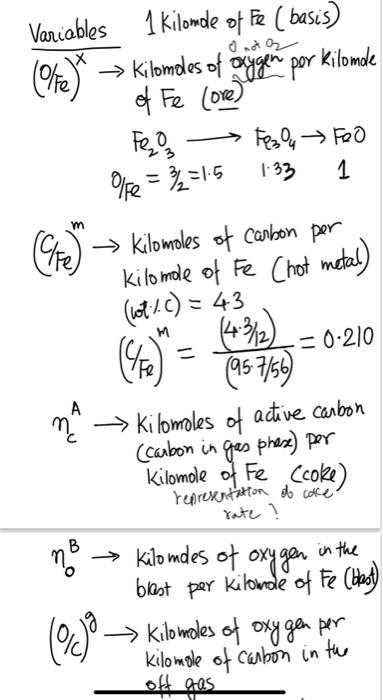 Variables 1 Kilomole of Fe (basis)
O not O2
(O/Fe)^x → Kilomoles of oxygen per kilomole
of Fe (ore)
Fe2O3 → Fe3O4 → FeO
O/Fe = 3/2 = 1.5 1.33 1
(C/Fe)^m → Kilomoles of Carbon per
kilomole of Fe (hot metal)
(wt.%.C) = 4.3
(C/Fe)^m = (4.3/12)/(95.7/56) = 0.210
η_c^A → Kilomoles of active carbon
(carbon in gas phase) per
kilomole of Fe (coke)
representation do coke
rate ?
η_o^B → kilomoles of oxygen in the
blast per kilomole of Fe (blast)
(O/C)^g → kilomoles of oxygen per
kilomole of Carbon in the
off gas